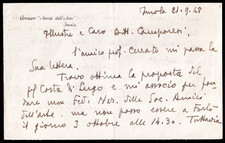 Gruppo "Amici dell'Arte"
Imola
Imola 21.9.48
Illustre e Caro Dott. Campores,
l'amico prof. Cerrato mi passa la
Sua lettera.
Trovo ottima la proposta del
pf. Costa di Lugo e mi associo per fon
dare una Fed. Nes. delle Soc. Amici
dell'arte. ma non posso essere a Forlì
il giorno 3 ottobre alle 14.30. Tuttavia